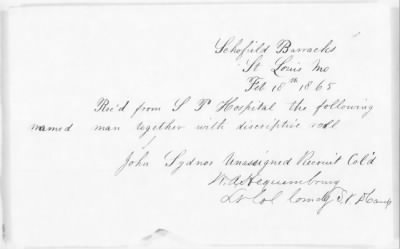 Schofield Barracks
St Louis Mo
Feb 18th 1865
Rec'd from S P Hospital the following
named man together with discriptive roll
John Sydnor Unassigned Recruit Col'd
Lt Col Comdg